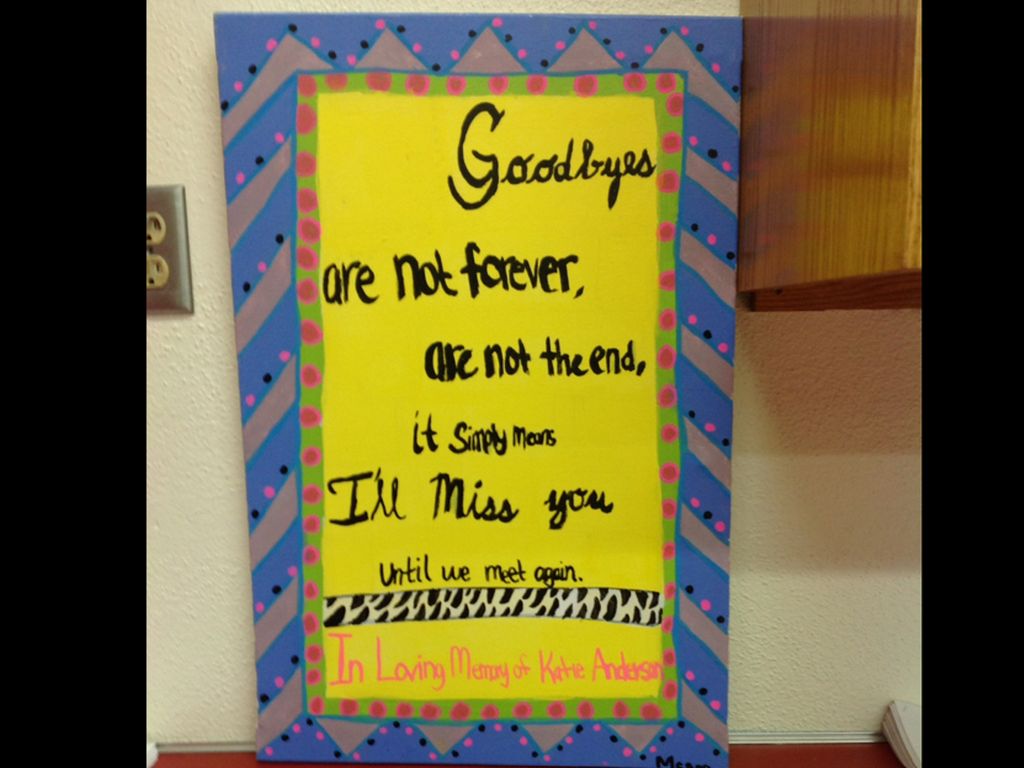 Goodbyes
are not forever,
are not the end,
it simply means
I'll Miss you
until we meet again.
In Loving Memory of Katie Anderson